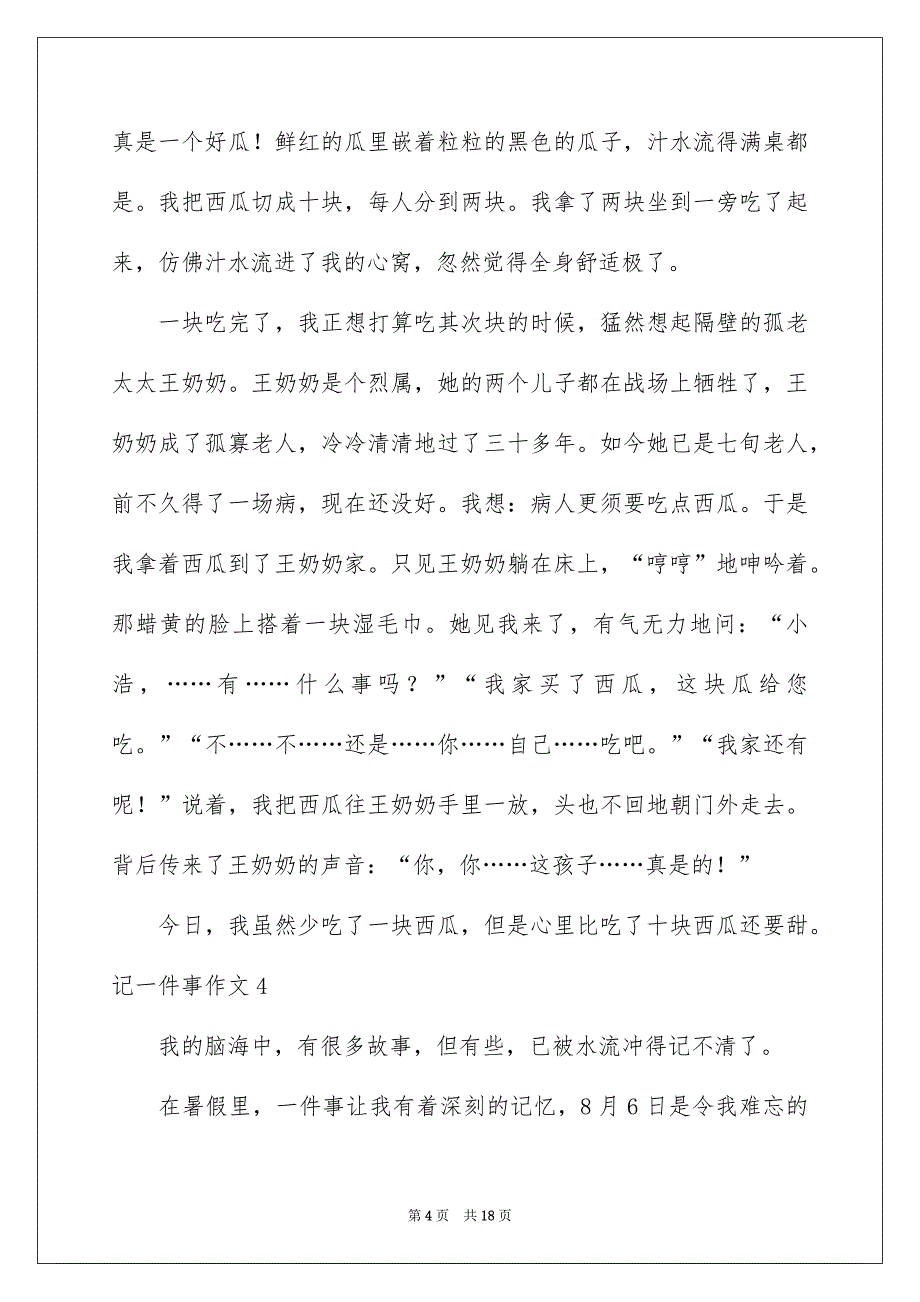 真是一个好瓜！鲜红的瓜里嵌着粒粒的黑色的瓜子，汁水流得满桌都
是。我把西瓜切成十块，每人分到两块。我拿了两块坐到一旁吃了起
来，仿佛汁水流进了我的心窝，忽然觉得全身舒适极了。
一块吃完了，我正想打算吃其次块的时候，猛然想起隔壁的孤老
太太王奶奶。王奶奶是个烈属，她的两个儿子都在战场上牺牲了，王
奶奶成了孤寡老人，冷冷清清地过了三十多年。如今她已是七旬老人，
前不久得了一场病，现在还没好。我想：病人更须要吃点西瓜。于是
我拿着西瓜到了王奶奶家。只见王奶奶躺在床上，“哼哼”地呻吟着。
那蜡黄的脸上搭着一块湿毛巾。她见我来了，有气无力地问：“小
浩，……有……什么事吗？”“我家买了西瓜，这块瓜给您
吃。”“不……不……还是……你……自己……吃吧。”“我家还有
呢！”说着，我把西瓜往王奶奶手里一放，头也不回地朝门外走去。
背后传来了王奶奶的声音：“你，你……这孩子……真是的！”
今日，我虽然少吃了一块西瓜，但是心里比吃了十块西瓜还要甜。
记一件事作文 4
我的脑海中，有很多故事，但有些，已被水流冲得记不清了。
在暑假里，一件事让我有着深刻的记忆，8 月 6 日是令我难忘的
第 4 页 共 18 页